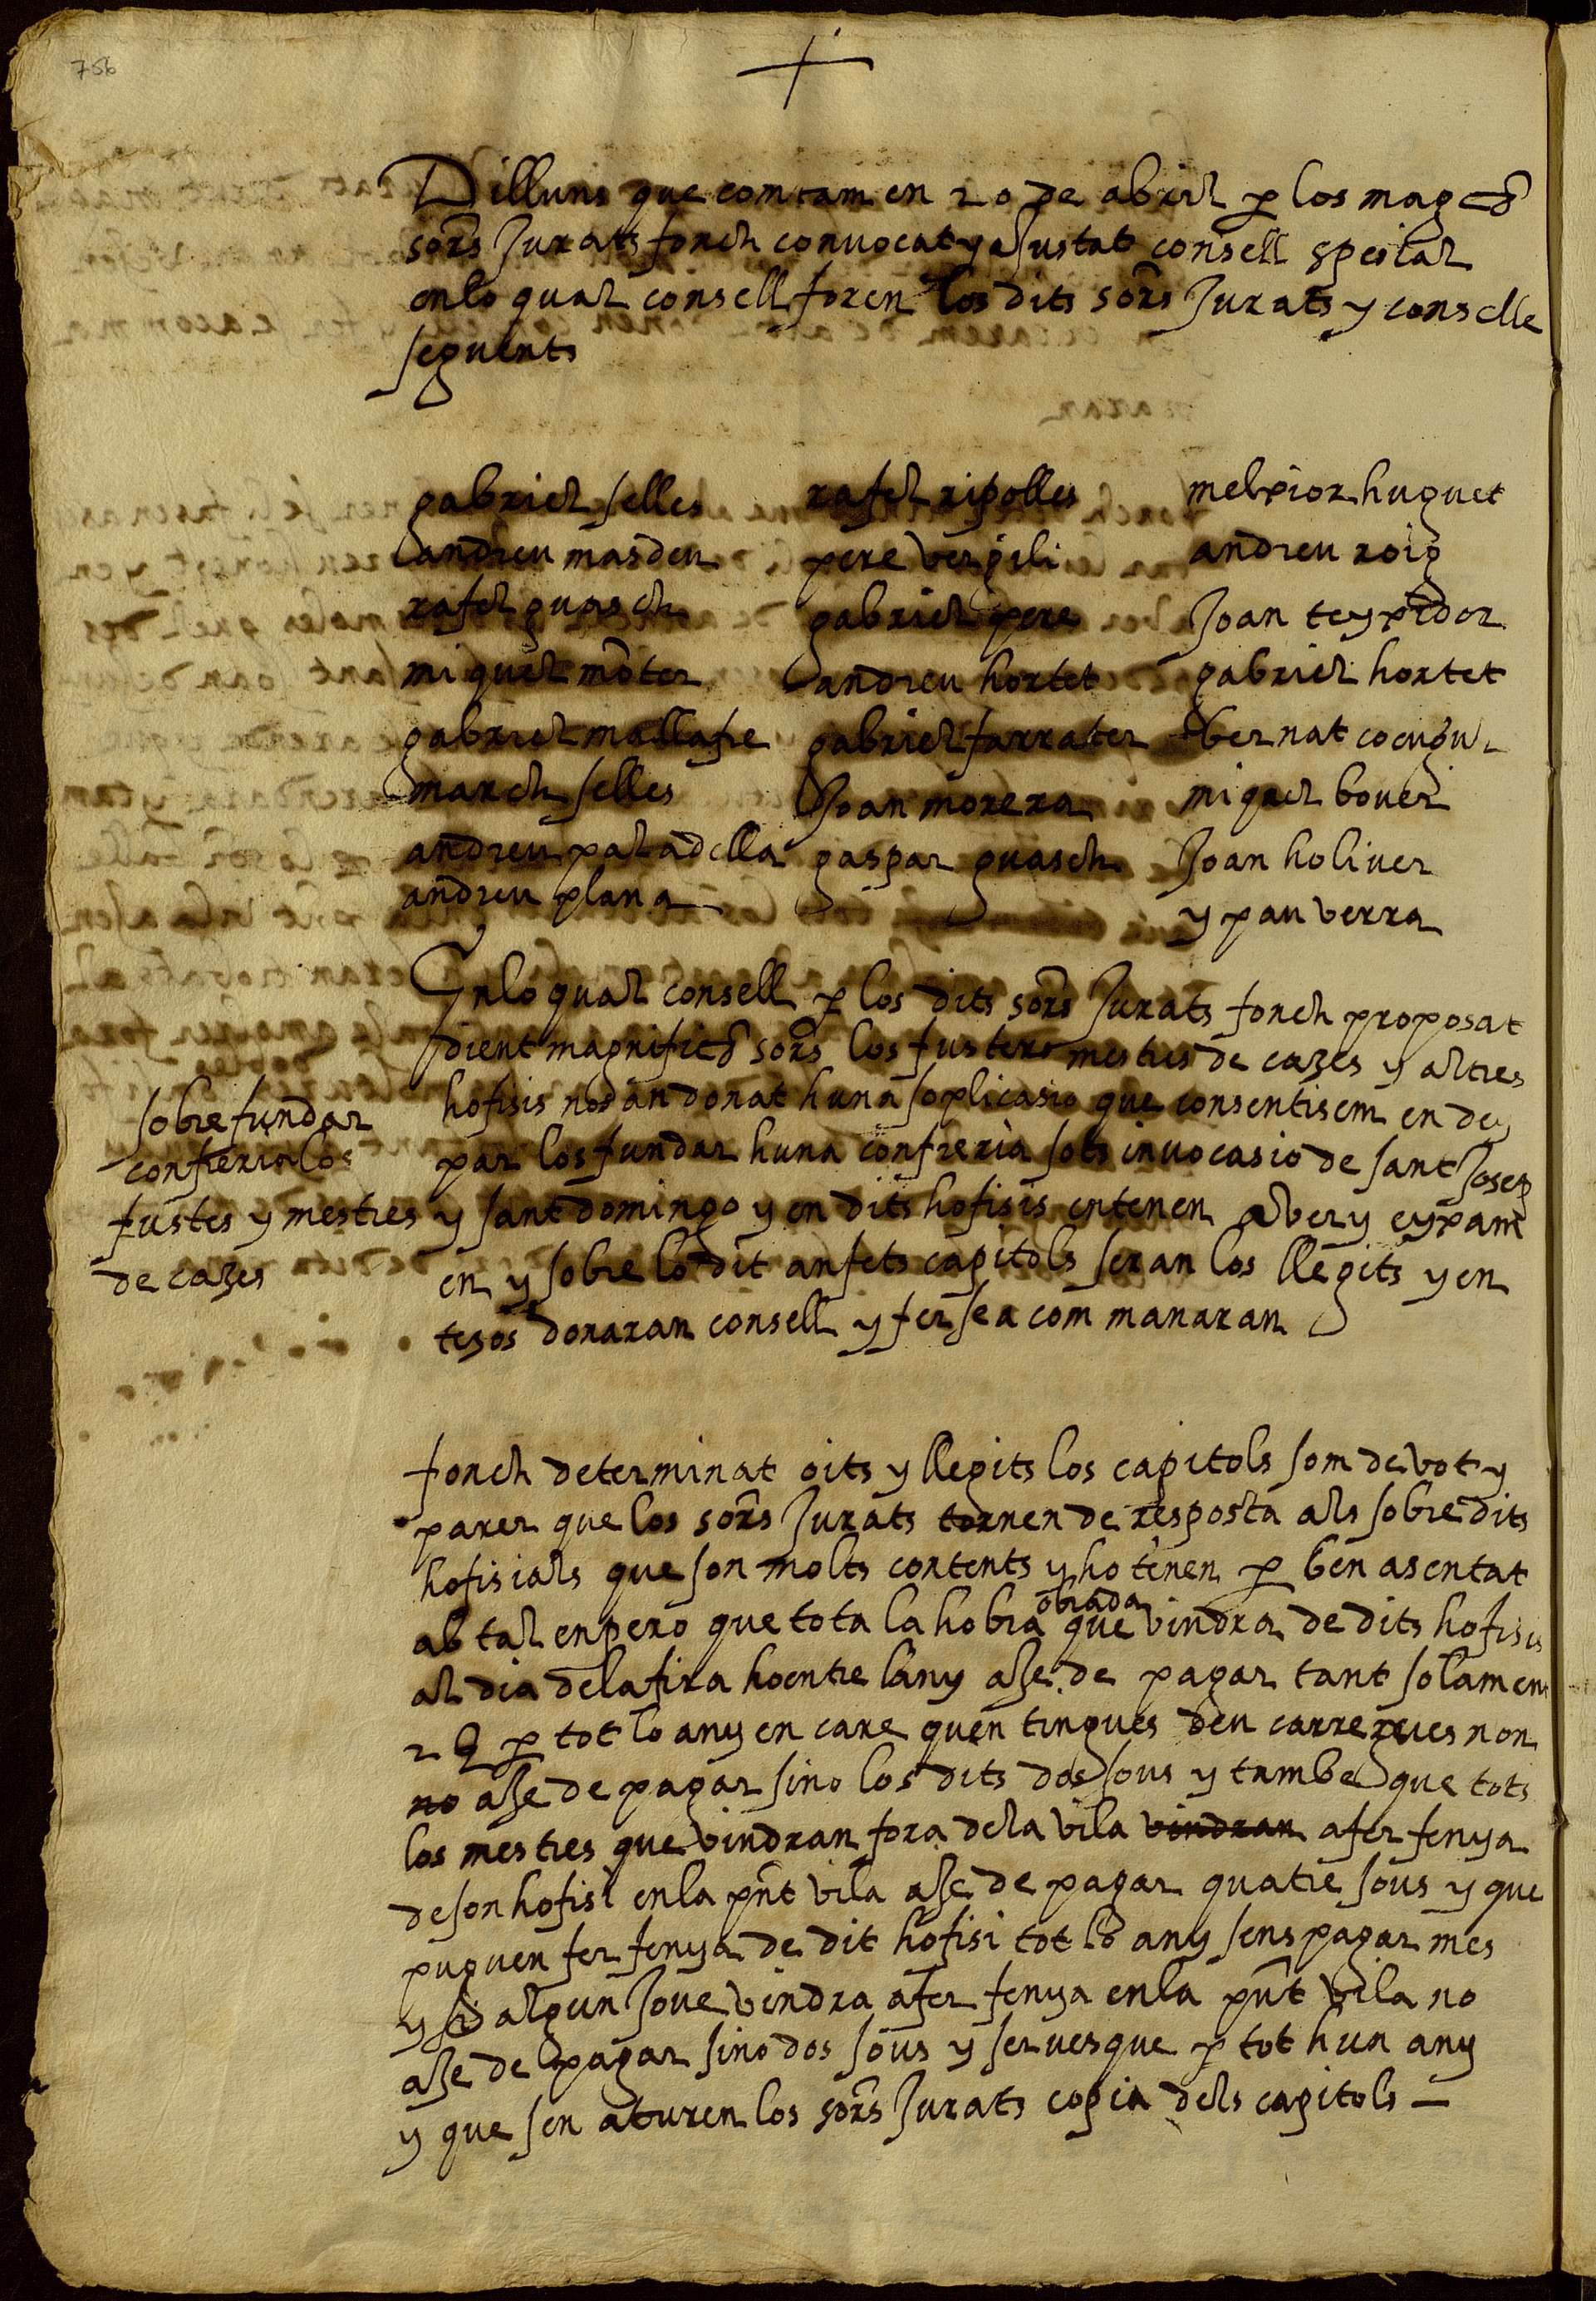 756
Dilluns que comtam en 20 de abril p los mag cs
sors Jurats fonch convocat y aJustat consell spesial
enlo qual consell foren los dits sors Jurats y conselle
seguents
gabriel selles rafel ripolles melxior huguet
andreu masdeu pere vergili andreu roig
rafel guasch gabriel pere Joan teyxidor
miquel moter andreu hortet gabriel hortet
gabriel mallafre gabriel farrater bernat
march selles Joan morera miquel bover
andreu paladella gaspar guasch Joan holiver
andreu plana y pau verra
Enlo qual consell p los dits sors Jurats fonch proposat
dient magnifichs sors los fusters mestres de cazes y altres
hofisis nos an donat huna soplicasio que consentisem en dey
par los fundar huna confreria sots invocasio de sant Josep
y sant domingo y en dits hofisis entenen aver y eyxam
en y sobre lo dit an fets capitols seran los llegits y en
tesos donaran consell y fer se a com manaran
sobre fundar
confreria los
fustes y mestres
de cazes
fonch determinat oits y llegits los capitols som de vot y
parer que los sors Jurats tornen de resposta als sobre dits
hofisials que son molts contents y ho tenen p ben asentat
ab tal enpero que tota la hobra obrada que vindra de dits hofisis
al dia dela fira ho entre lany a se de pagar tant solamen
2 s p tot lo any en care quen tingues deu carregues non
no a se de pagar sino los dits dos sous y tambe que tots
los mestres que vindran fora dela vila vindran a fer fenya
de son hofisi en la pnt vila a se de pagar quatre sous y que
puguen fer fenya de dit hofisi tot lo any sens pagar mes
y si algun Jove vindra a fer fenya en la pnt vila no
a se de pagar sino dos sous y servesque p tot hun any
y que sen aturen los sors Jurats copia dels capitols —